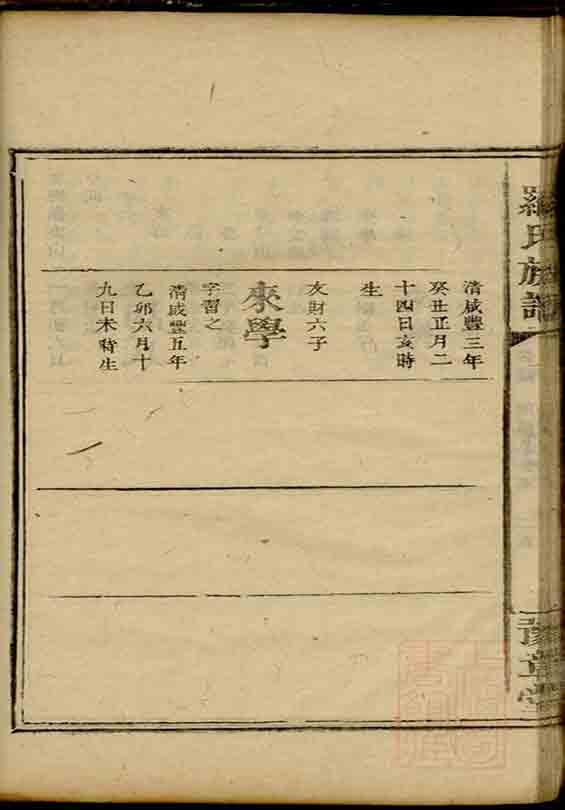 羅氏族譜
豫章堂
清咸豐三年
癸丑正月二
十四日亥時
生
友財六子
來學
字習之
清咸豐五年
乙卯六月十
九日未時生